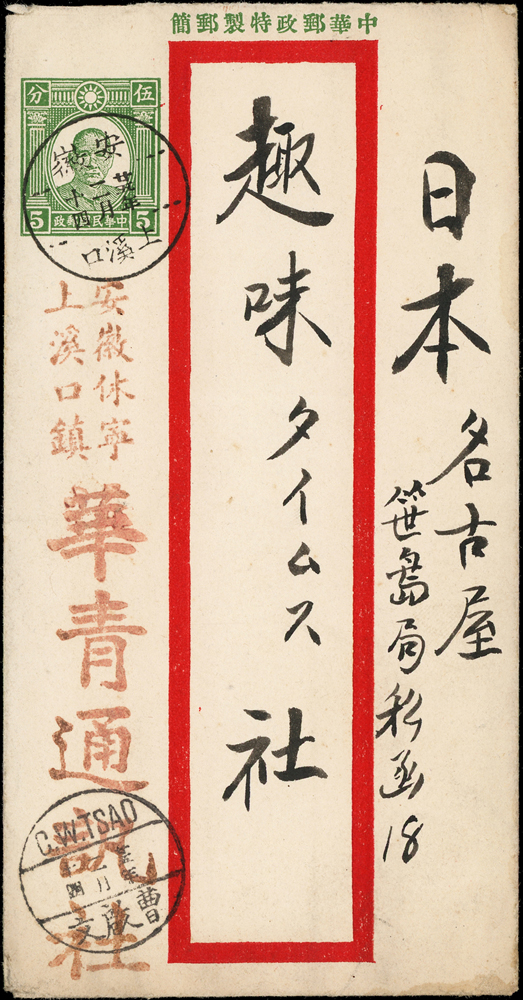 中華郵政特製郵簡
日本
名古屋
笹島局私函18
趣味タイムス社
伍分
5 5
中華民國郵政
安徽
十四
上溪口
安徽休寧
上溪口鎮
華青通訊社
C.W.TSAO
曹
文